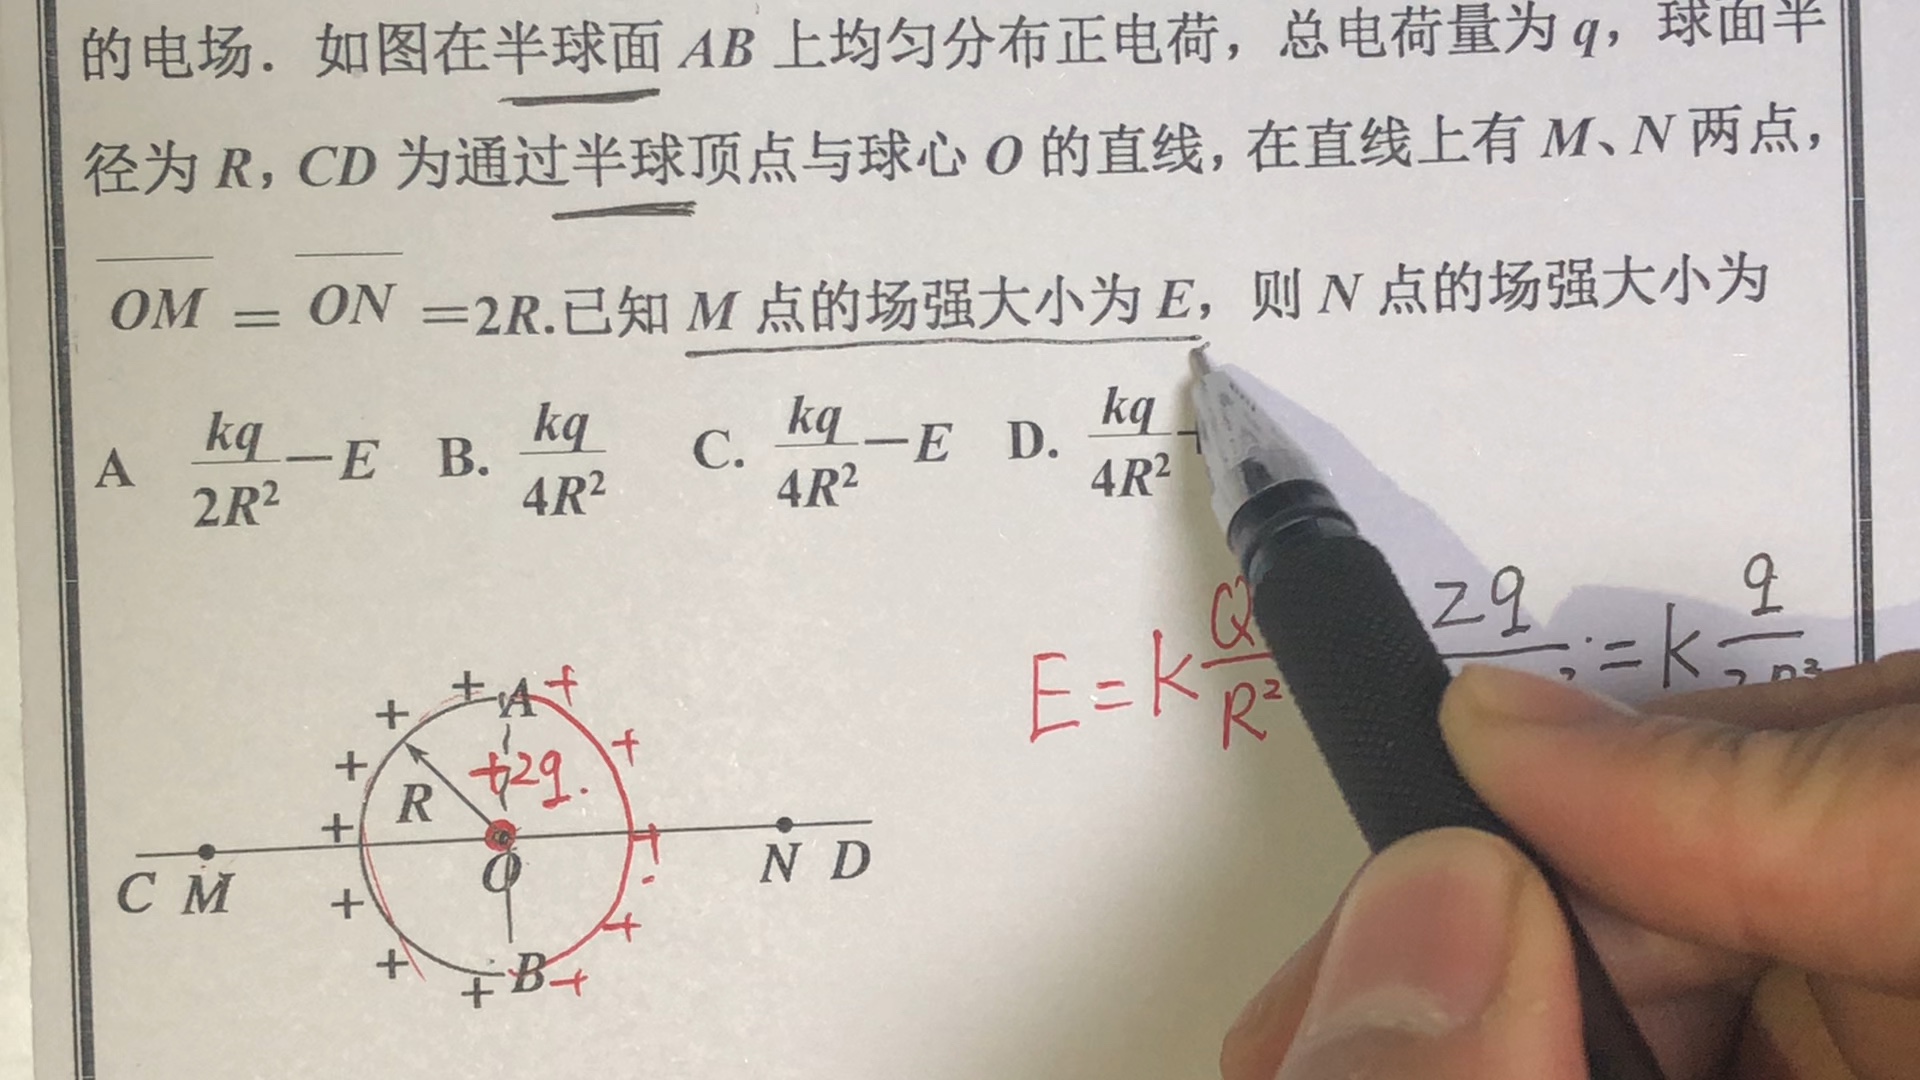 的电场．如图在半球面 AB 上均匀分布正电荷，总电荷量为 q，球面半
径为 R，CD 为通过半球顶点与球心 O 的直线，在直线上有 M、N 两点，
OM = ON =2R.已知 M 点的场强大小为 E，则 N 点的场强大小为
A kq/2R² −E B. kq/4R² C. kq/4R² −E D. kq/4R²
E = k Q/R² 2q = k q/2R²
+ A +
+ +
+ R +2q. 
+ +
C M O N D
+ +
+ + B +